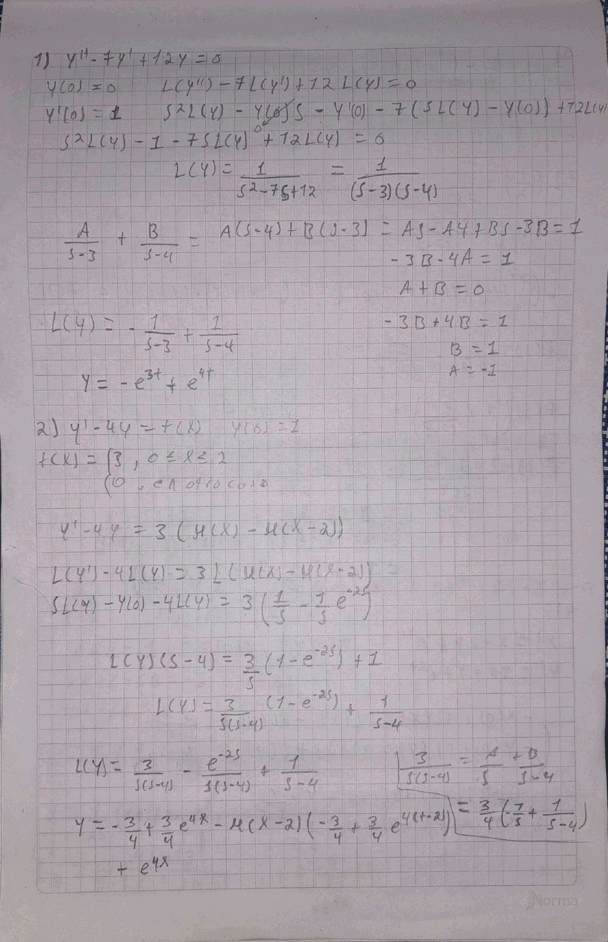 1) y'' - 7y' + 12y = 0
y(0) = 0 L(y'') - 7L(y') + 12 L(y) = 0
y'(0) = 1 s²L(y) - y(0)s - y'(0) - 7(sL(y) - y(0)) + 12L(y)
s²L(y) - 1 - 7sL(y) + 12L(y) = 0
L(y) = 1/(s² - 7s + 12) = 1/((s-3)(s-4))
A/(s-3) + B/(s-4) = A(s-4) + B(s-3) = As - A4 + Bs - 3B = 1
-3B - 4A = 1
A + B = 0
L(y) = - 1/(s-3) + 1/(s-4) -3B + 4B = 1
B = 1
A = -1
y = -e^{3t} + e^{4t}
2) y' - 4y = f(x) y(0) = 1
f(x) = {3, 0 ≤ x ≤ 2
{0, en otro caso
y' - 4y = 3(μ(x) - μ(x-2))
L(y') - 4L(y) = 3L(μ(x) - μ(x-2))
sL(y) - y(0) - 4L(y) = 3(1/s - 1/s e^{-2s})
L(y)(s-4) = 3/s (1 - e^{-2s}) + 1
L(y) = 3/(s(s-4)) (1 - e^{-2s}) + 1/(s-4)
L(y) = 3/(s(s-4)) - e^{-2s}/(s(s-4)) + 1/(s-4) 3/(s(s-4)) = A/s + B/(s-4)
y = -3/4 + 3/4 e^{4x} - μ(x-2)(-3/4 + 3/4 e^{4(t-2)}) = 3/4 ( /s + 1/(s-4))
+ e^{4x}
Norma